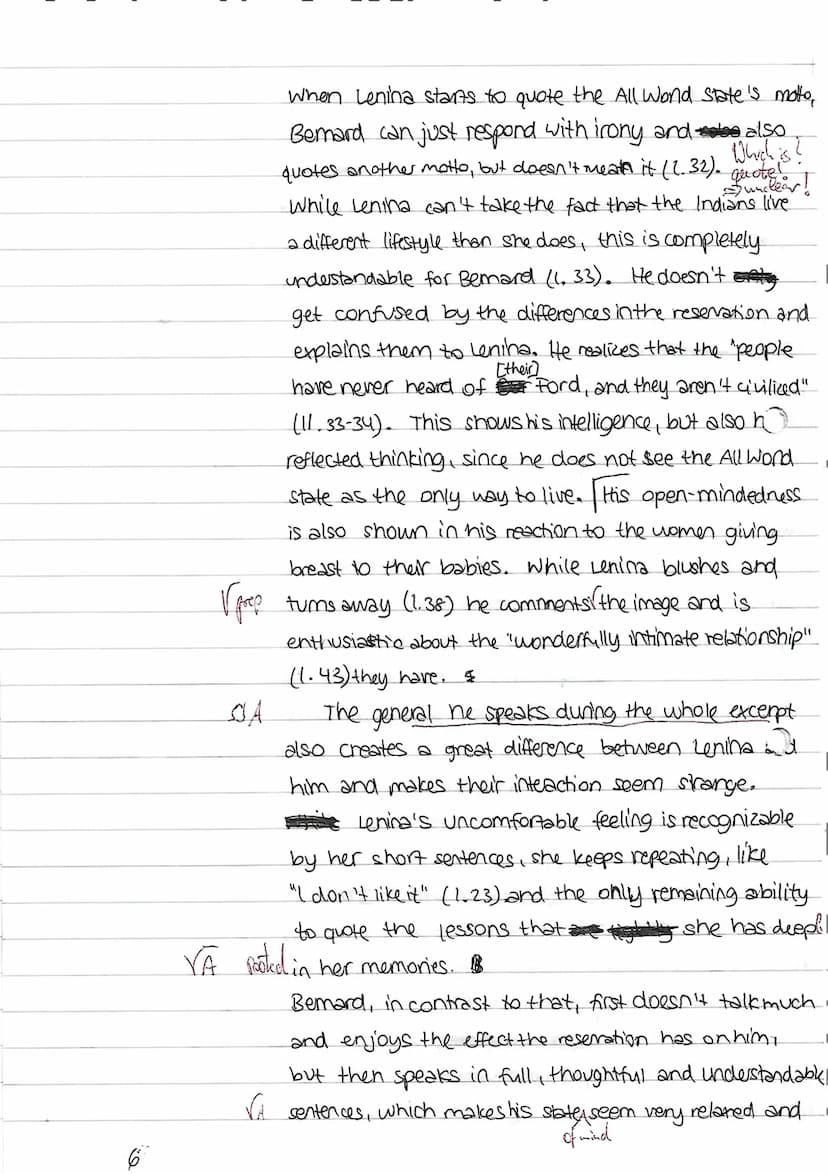 When Lenina starts to quote the All World State's motto,
Bernard can just respond with irony and also
Which is?
quotes another motto, but doesn't mean it (l.32). quote!
⇒ unclear!
While Lenina can't take the fact that the Indians live
a different lifestyle than she does, this is completely
understandable for Bernard (l. 33). He doesn't
get confused by the differences in the reservation and
explains them to Lenina. He realizes that the "people
[their]
have never heard of Ford, and they aren't civilized"
(ll. 33-34). This shows his intelligence, but also h
reflected thinking, since he does not see the All World
state as the only way to live. His open-mindedness
is also shown in his reaction to the women giving
breast to their babies. While Lenina blushes and
√prep turns away (l.38) he commnents√the image and is
enthusiastic about the "wonderfully intimate relationship"
(l. 43) they have.
A The general he speaks during the whole excerpt
also creates a great difference between Lenina and
him and makes their inteaction seem strange.
Lenina's uncomfortable feeling is recognizable
by her short sentences, she keeps repeating, like
"I don't like it" (l.23) and the only remaining ability
to quote the lessons that she has deepl
√A rooted in her memories.
Bernard, in contrast to that, first doesn't talk much
and enjoys the effect the reservation has on him,
but then speaks in full, thoughtful and understandable
√A sentences, which makes his state√seem very relaxed and
of mind
6